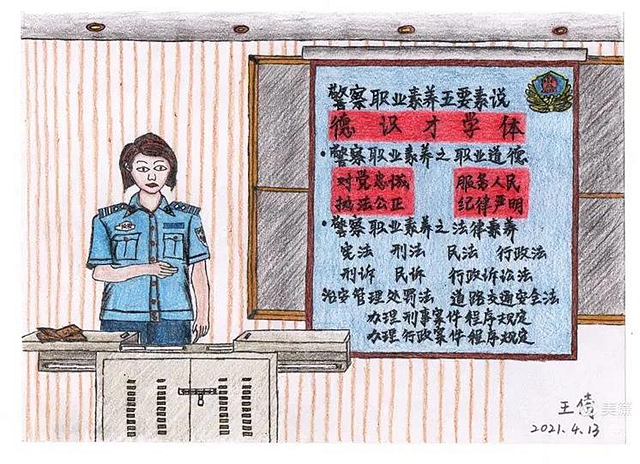 警察职业素养五要素说
德 识 才 学 体
·警察职业素养之职业道德
对党忠诚 服务人民
执法公正 纪律严明
·警察职业素养之法律素养
宪法 刑法 民法 行政法
刑诉 民诉 行政诉讼法
治安管理处罚法 道路交通安全法
办理刑事案件程序规定
办理行政案件程序规定
王倩
2021.4.13